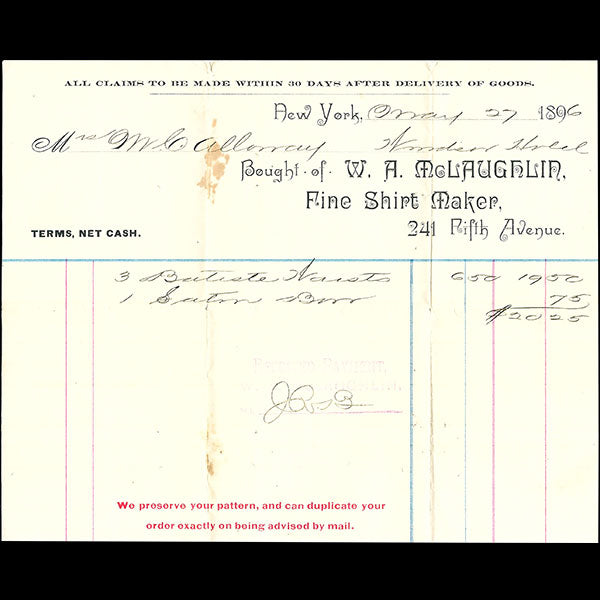 ALL CLAIMS TO BE MADE WITHIN 30 DAYS AFTER DELIVERY OF GOODS.
New York, May 27 1896
Mrs McCalloway Windsor Hotel
Bought of W. A. McLAUGHLIN,
Fine Shirt Maker,
TERMS, NET CASH. 241 Fifth Avenue.
3 Batiste Waists 650 1950
1 Satin Bow 75
$2025
RECEIVED PAYMENT,
We preserve your pattern, and can duplicate your
order exactly on being advised by mail.